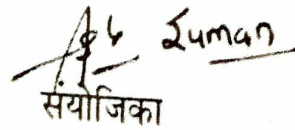 Suman
संयोजिका